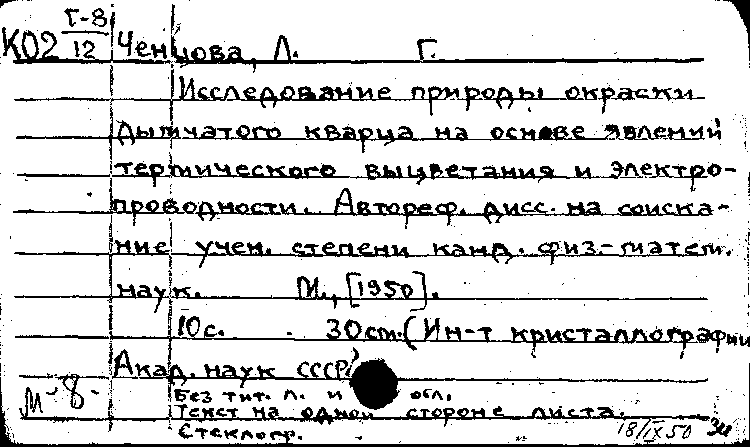 Г-8
К02 12 Ченцова, Л. Г.
Исследование природы окраски
дымчатого кварца на основе явлений
термического выцветания и электро-
проводности. Автореф. дисс. на соиска-
ние учен. степени канд. физ.-матем.
наук. М., [1950].
10с. 30см. (Ин-т кристаллографии
Акад. наук СССР)
М-8-
Без тит. л. и обл.
Текст на одной стороне листа.
Стеклогр.
18/IX 50